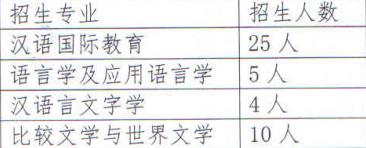 招生专业 招生人数
汉语国际教育 25人
语言学及应用语言学 5人
汉语言文字学 4人
比较文学与世界文学 10人